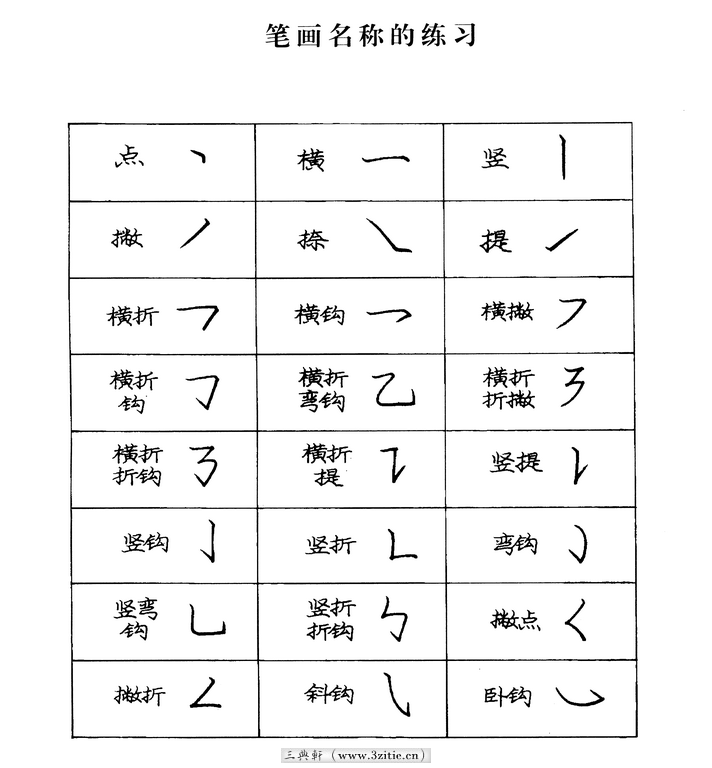 笔画名称的练习
点 丶
横 一
竖 丨
撇 丿
捺 ㇏
提 ㇀
横折 ㇕
横钩 ㇖
横撇 ㇇
横折
钩 ㇆
横折
弯钩 ㇈
横折
折撇 ㇋
横折
折钩 ㇌
横折
提 ㇊
竖提 ㇙
竖钩 亅
竖折 ㇗
弯钩 ㇁
竖弯
钩 ㇟
竖折
折钩 ㇉
撇点 ㇛
撇折 ㇜
斜钩 ㇂
卧钩 ㇃
三典轩（www.3zitie.cn）